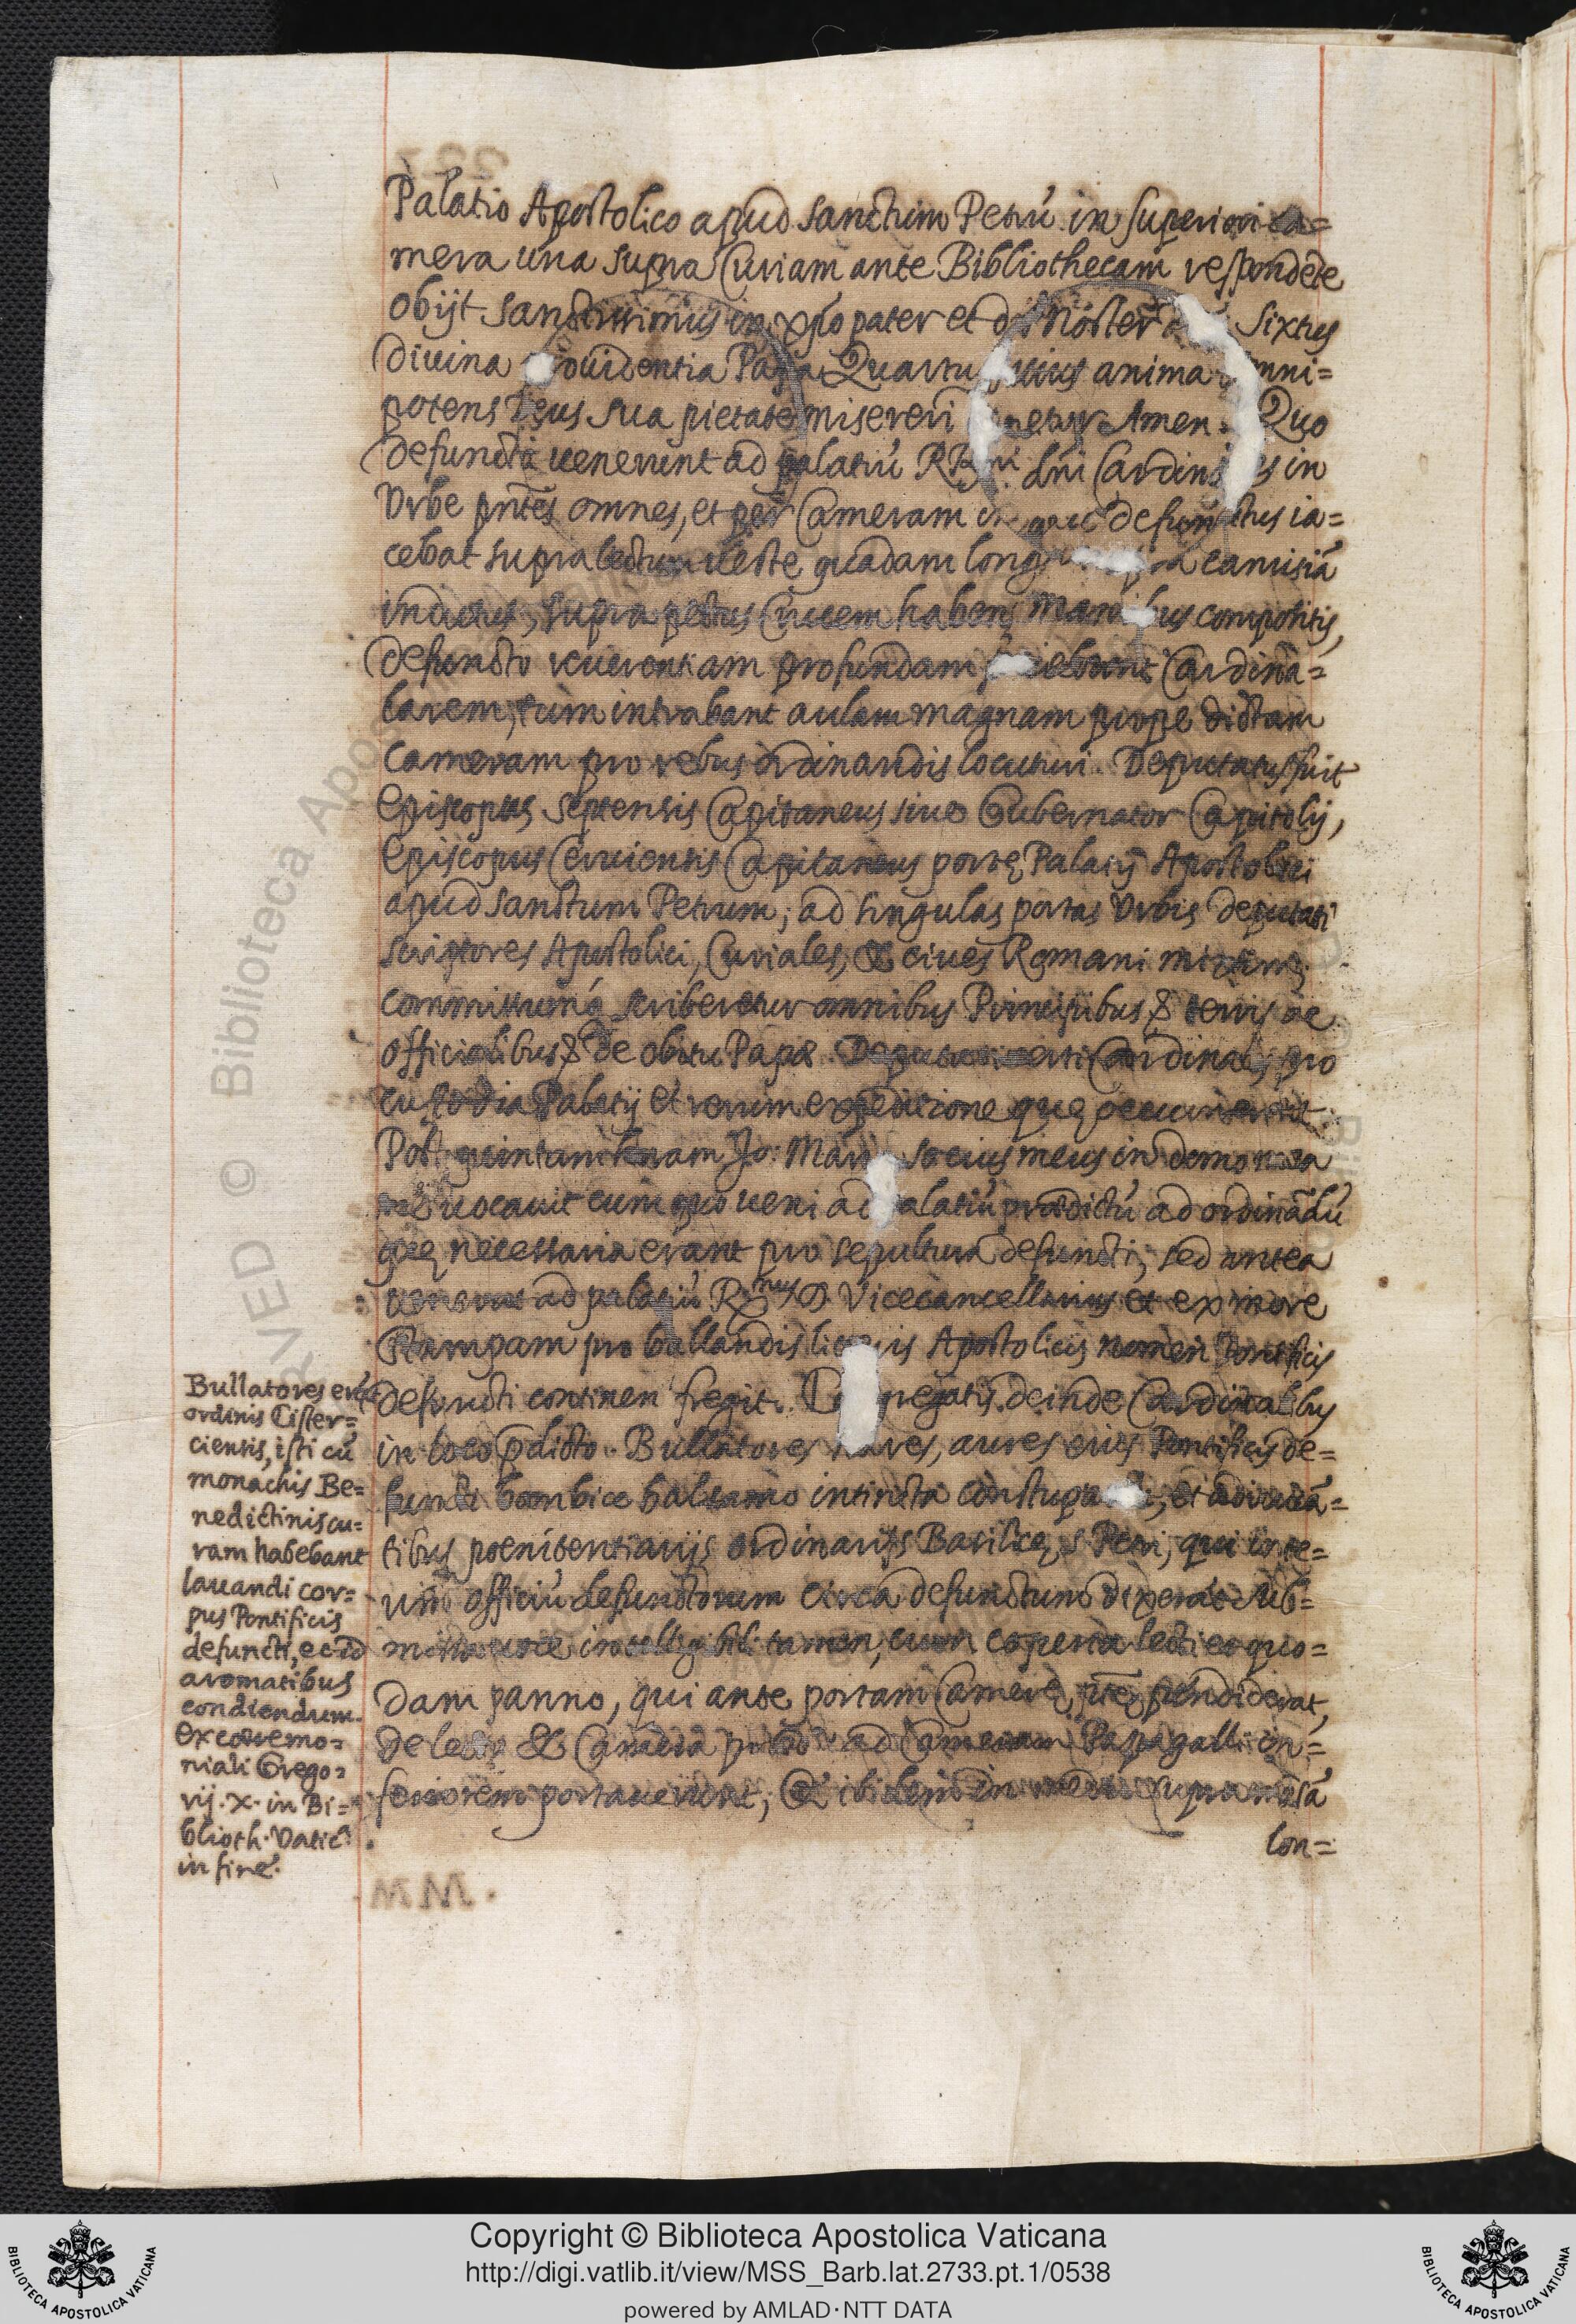 Palatio Apostolico apud sanctum Petrũ in superiori ca=
mera una supra Curiam ante Bibliothecam respondẽte
obijt sanctissimus in xp̃o pater et dñs noster Sixtus
diuina prouidentia Papa Quartus cuius anima omni=
potens Deus sua pietate misereri dignetur Amen. Quo
defuncto uenerunt ad palatiũ RR.mi dñi Cardinales in
Vrbe pñtes omnes, et per Cameram defunctus ia=
cebat supra lectum ueste quadam longa supra camisiã
indutus, supra pectus Crucem habens manibus compositis,
defuncto reuerentiam profundam faciebant Cardina=
larem, tum intrabant aulam magnam prope dictam
Cameram pro rebus ordinandis locuturi. Deputatus fuit
Episcopus Septensis Capitaneus siue Gubernator Capitolij,
Episcopus Ceruiensis Capitaneus portę Palatij Apostolici
apud sanctum Petrum; ad singulas portas Vrbis deputati
scriptores Apostolici, Curiales, & ciues Romani
scriberetur omnibus Principibus, & terris ac
officialibus & de obitu Papæ. Cardinales pro
custodia Palatij et rerum expeditione quę occurrerent.
Post quintam horam Jo: Maria socius meus in domo mea
me uocauit cum quo ueni ad palatiũ prædictũ ad ordinãdũ
quę necessaria erant pro sepultura defuncti; sed antea
uenerat ad palatiũ R.mus D. Vicecancellarius et ex more
Stampam pro bullandis litteris Apostolicis nomen Pontificis
defuncti continen fregit. Congregatis deinde Cardinalibus
in loco p̃dicto. Bullatores nares, aures eius Pontificis de=
functi bombice balsamo intincta
tibus poenitentiarijs ordinarijs Basilicę S Petri, qui inte=
rim officiũ defunctorum circa defunctum dixerãt sub=
missa uoce intelligibili tamen, cum coperta lecti et quo=
dam panno, qui ante portam Camerę
de lecto & Camera ad Cameram Papagalli in=
feriorem portauerunt; & ibidem in medio supra mesã
lon=
Bullatores erãt
ordinis Cister=
ciensis, isti cũ
monachis Be=
nedictinis cu=
ram habebant
lauandi cor=
pus Pontificis
defuncti, et id
aromatibus
condiendum.
Ex cæremo=
niali Grego=
rij. X. in Bi=
blioth. Vatic.
in fine.
Copyright © Biblioteca Apostolica Vaticana
http://digi.vatlib.it/view/MSS_Barb.lat.2733.pt.1/0538
powered by AMLAD·NTT DATA
BIBLIOTECA APOSTOLICA VATICANA
BIBLIOTECA APOSTOLICA VATICANA